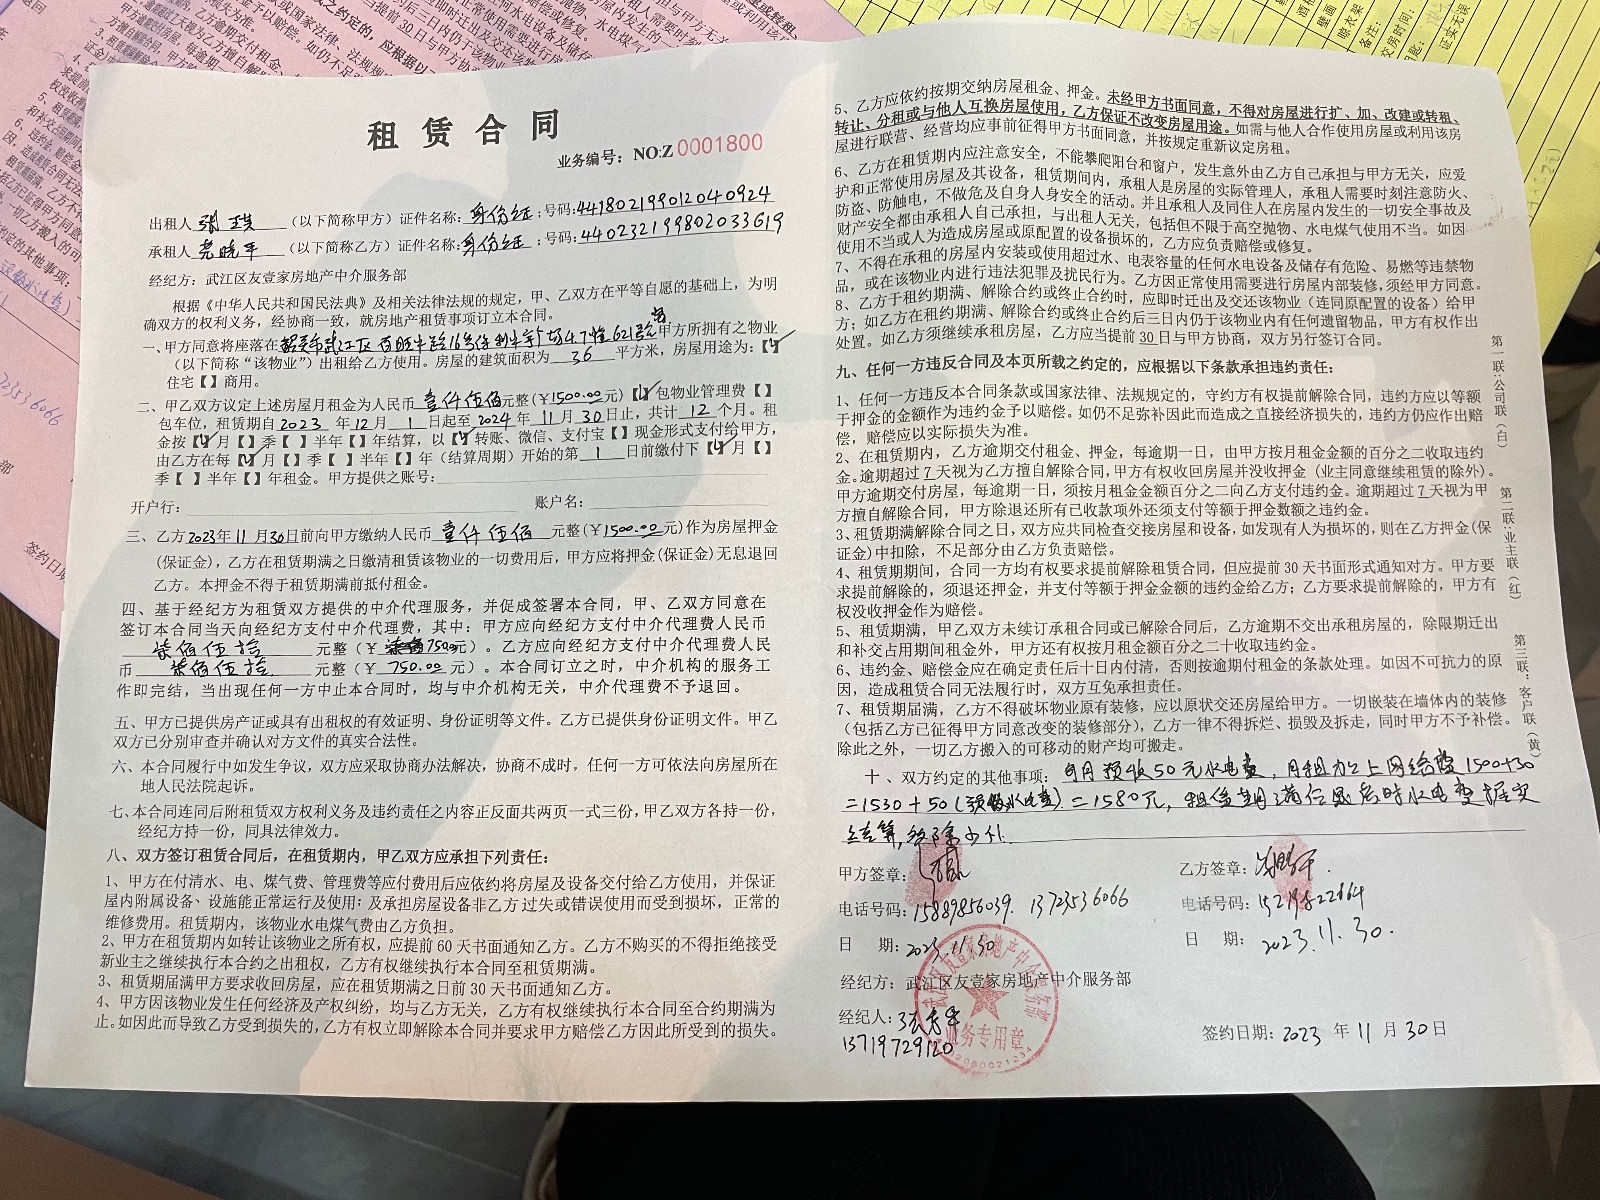 租赁合同
业务编号：NO:Z 0001800
出租人 （以下简称甲方）证件名称：身份证；号码：441802199012040924
承租人 （以下简称乙方）证件名称：身份证；号码：440232199802033619
经纪方：武江区友壹家房地产中介服务部
根据《中华人民共和国民法典》及相关法律法规的规定，甲、乙双方在平等自愿的基础上，为明
确双方的权利义务，经协商一致，就房地产租赁事项订立本合同。
一、甲方同意将座落在韶关市武江区百旺 路16号 7幢621号房甲方所拥有之物业
（以下简称“该物业”）出租给乙方使用。房屋的建筑面积为 36 平方米，房屋用途为：【✓】
住宅【】商用。
二、甲乙双方议定上述房屋月租金为人民币 壹仟伍佰元整(￥1500.00元)【✓】包物业管理费【】
包车位，租赁期自2023 年12月 1 日起至2024年 11月30日止，共计 12 个月。租
金按【✓】月【】季【】半年【】年结算，以【✓】转账、微信、支付宝【】现金形式支付给甲方，
由乙方在每【✓】月【】季【】半年【】年（结算周期）开始的第 1 日前缴付下【✓】月【】
季【】半年【】年租金。甲方提供之账号：
开户行： 账户名：
三、乙方2023年11月30日前向甲方缴纳人民币 壹仟伍佰 元整(￥1500.00元)作为房屋押金
(保证金)，乙方在租赁期满之日缴清租赁该物业的一切费用后，甲方应将押金(保证金)无息退回
乙方。本押金不得于租赁期满前抵付租金。
四、基于经纪方为租赁双方提供的中介代理服务，并促成签署本合同，甲、乙双方同意在
签订本合同当天向经纪方支付中介代理费，其中：甲方应向经纪方支付中介代理费人民币
柒佰伍拾 元整（￥ 750元）。乙方应向经纪方支付中介代理费人民
币 柒佰伍拾 元整（￥ 750.00 元）。本合同订立之时，中介机构的服务工
作即完结，当出现任何一方中止本合同时，均与中介机构无关，中介代理费不予退回。
五、甲方已提供房产证或具有出租权的有效证明、身份证明等文件。乙方已提供身份证明文件。甲乙
双方已分别审查并确认对方文件的真实合法性。
六、本合同履行中如发生争议，双方应采取协商办法解决，协商不成时，任何一方可依法向房屋所在
地人民法院起诉。
七、本合同连同后附租赁双方权利义务及违约责任之内容正反面共两页一式三份，甲乙双方各持一份，
经纪方持一份，同具法律效力。
八、双方签订租赁合同后，在租赁期内，甲乙双方应承担下列责任：
1、甲方在付清水、电、煤气费、管理费等应付费用后应依约将房屋及设备交付给乙方使用，并保证
屋内附属设备、设施能正常运行及使用：及承担房屋设备非乙方过失或错误使用而受到损坏，正常的
维修费用。租赁期内，该物业水电煤气费由乙方负担。
2、甲方在租赁期内如转让该物业之所有权，应提前60天书面通知乙方。乙方不购买的不得拒绝接受
新业主之继续执行本合约之出租权，乙方有权继续执行本合同至租赁期满。
3、租赁期届满甲方要求收回房屋，应在租赁期满之日前30天书面通知乙方。
4、甲方因该物业发生任何经济及产权纠纷，均与乙方无关，乙方有权继续执行本合同至合约期满为
止。如因此而导致乙方受到损失的，乙方有权立即解除本合同并要求甲方赔偿乙方因此所受到的损失。
5、乙方应依约按期交纳房屋租金、押金。未经甲方书面同意，不得对房屋进行扩、加、改建或转租、
转让、分租或与他人互换房屋使用，乙方保证不改变房屋用途。如需与他人合作使用房屋或利用该房
屋进行联营、经营均应事前征得甲方书面同意，并按规定重新议定房租。
6、乙方在租赁期内应注意安全，不能攀爬阳台和窗户，发生意外由乙方自己承担与甲方无关，应爱
护和正常使用房屋及其设备，租赁期间内，承租人是房屋的实际管理人，承租人需要时刻注意防火、
防盗、防触电，不做危及自身人身安全的活动。并且承租人及同住人在房屋内发生的一切安全事故及
财产安全都由承租人自己承担，与出租人无关，包括但不限于高空抛物、水电煤气使用不当。如因
使用不当或人为造成房屋或原配置的设备损坏的，乙方应负责赔偿或修复。
7、不得在承租的房屋内安装或使用超过水、电表容量的任何水电设备及储存有危险、易燃等违禁物
品，或在该物业内进行违法犯罪及扰民行为。乙方因正常使用需要进行房屋内部装修，须经甲方同意。
8、乙方于租约期满、解除合约或终止合约时，应即时迁出及交还该物业（连同原配置的设备）给甲
方；如乙方在租约期满、解除合约或终止合约后三日内仍于该物业内有任何遗留物品，甲方有权作出
处置。如乙方须继续承租房屋，乙方应当提前30日与甲方协商，双方另行签订合同。
九、任何一方违反合同及本页所载之约定的，应根据以下条款承担违约责任：
1、任何一方违反本合同条款或国家法律、法规规定的，守约方有权提前解除合同，违约方应以等额
于押金的金额作为违约金予以赔偿。如仍不足弥补因此而造成之直接经济损失的，违约方仍应作出赔
偿，赔偿应以实际损失为准。
2、在租赁期内，乙方逾期交付租金、押金，每逾期一日，由甲方按月租金金额的百分之二收取违约
金。逾期超过7天视为乙方擅自解除合同，甲方有权收回房屋并没收押金（业主同意继续租赁的除外）。
甲方逾期交付房屋，每逾期一日，须按月租金金额百分之二向乙方支付违约金。逾期超过7天视为甲
方擅自解除合同，甲方除退还所有已收款项外还须支付等额于押金数额之违约金。
3、租赁期满解除合同之日，双方应共同检查交接房屋和设备，如发现有人为损坏的，则在乙方押金(保
证金)中扣除，不足部分由乙方负责赔偿。
4、租赁期期间，合同一方均有权要求提前解除租赁合同，但应提前30天书面形式通知对方。甲方要
求提前解除的，须退还押金，并支付等额于押金金额的违约金给乙方；乙方要求提前解除的，甲方有
权没收押金作为赔偿。
5、租赁期满，甲乙双方未续订承租合同或已解除合同后，乙方逾期不交出承租房屋的，除限期迁出
和补交占用期间租金外，甲方还有权按月租金额百分之二十收取违约金。
6、违约金、赔偿金应在确定责任后十日内付清，否则按逾期付租金的条款处理。如因不可抗力的原
因，造成租赁合同无法履行时，双方互免承担责任。
7、租赁期届满，乙方不得破坏物业原有装修，应以原状交还房屋给甲方。一切嵌装在墙体内的装修
（包括乙方已征得甲方同意改变的装修部分），乙方一律不得拆烂、损毁及拆走，同时甲方不予补偿。
除此之外，一切乙方搬入的可移动的财产均可搬走。
十、双方约定的其他事项：每月预收50元水电费，月租加上网络费1500+30
=1530+50（预收水电费）=1580元，租赁期满 退房时水电费据实
结算，多除少补.
甲方签章： 乙方签章：
电话号码：15889856039. 13723536066 电话号码：
日 期：2023.11.30 日 期：2023.11.30.
经纪方：武江区友壹家房地产中介服务部
经纪人：
13719729120
签约日期：2023 年 11 月 30日
武江区友壹家房地产中介服务部
业务专用章
第一联：公司联（白）
第二联：业主联（红）
第三联：客户联（黄）